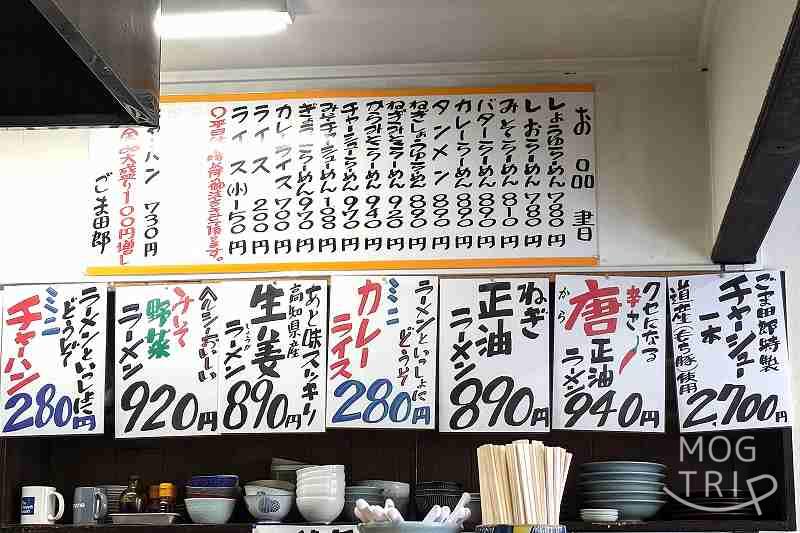 お品書
しょうゆらーめん 780円
しおらーめん 780円
みそらーめん 810円
バターらーめん 890円
カレーらーめん 890円
タンメン 890円
ねぎしょうゆらーめん 890円
ねぎみそらーめん 920円
からみそらーめん 940円
チャーシューらーめん 970円
ぎょうざらーめん 970円
カレーライス 700円
ライス 200円
ライス(小) 150円
チャーハン 730円
大盛り100円増し
ごま田郎
ごま田郎特製
チャーシュー
一本
道産(もち豚)使用
2,700円
クセになる
辛さ
唐
から
正油
ラーメン
940円
ねぎ
正油
ラーメン
890円
ラーメンといっしょに
どうぞ
ミニ
カレー
ライス
280円
あと味スッキリ
高知県産
生姜
しょうが
ラーメン
890円
ヘルシーおいしい
みそ
野菜
ラーメン
920円
ラーメンといっしょに
どうぞ
ミニ
チャーハン
280円
MOG
TRIP